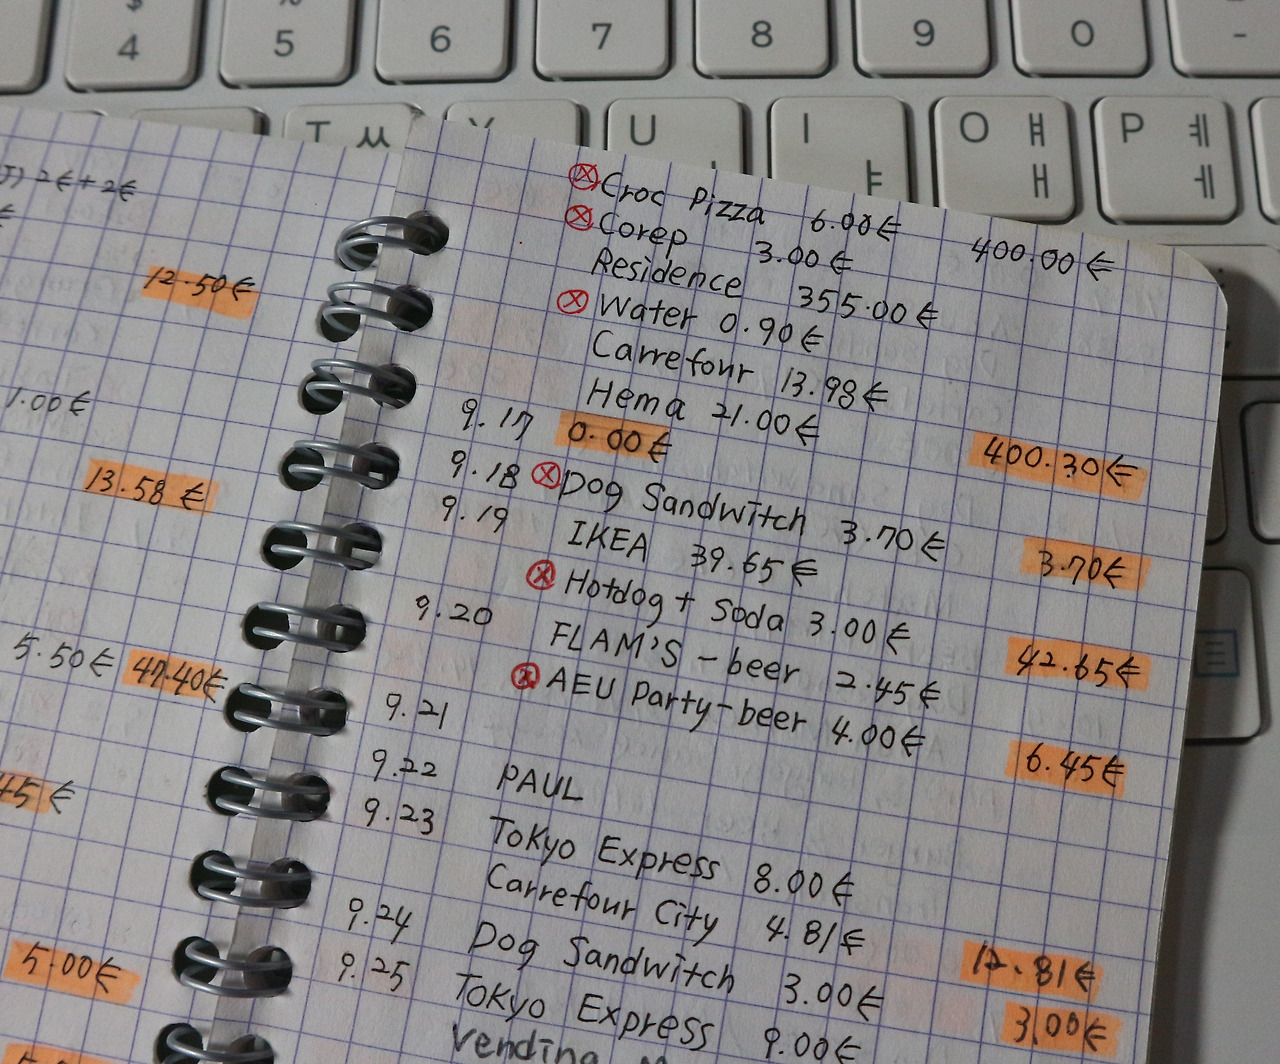 $ 4
% 5
6
7
8
9
0
-
T ㅆ
Y
U
I ㅑ
O ㅐ ㅒ
P ㅔ ㅖ
2€ + 2€
12.50€
1.00€
13.58 €
5.50€ 47.40€
45 €
5.00€
Croc Pizza 6.00€ 400.00 €
Corep 3.00€
Residence 355.00€
Water 0.90€
Carrefour 13.98€
Hema 21.00€
400.30€
9.17 0.00€
9.18 Dog Sandwitch 3.70€ 3.70€
9.19 IKEA 39.65€
Hotdog + Soda 3.00€ 42.65€
9.20 FLAM'S - beer 2.45€
AEU Party-beer 4.00€ 6.45€
9.21
9.22 PAUL
9.23 Tokyo Express 8.00€
Carrefour City 4.81€ 12.81€
9.24 Dog Sandwitch 3.00€ 3.00€
9.25 Tokyo Express 9.00€
Vending